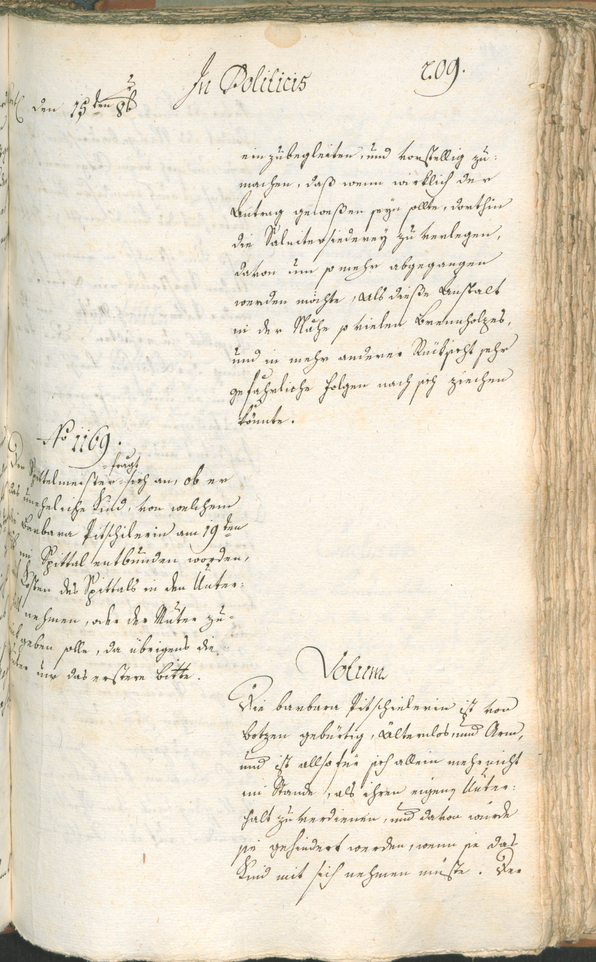 In Politicis
209.
den 15ten 8b
einzubegleiten, und vorstellig zu:
machen, daß wenn wirklich der
Antrag geweßen seyn sollte, dorthin
die Saliterssiederey zu verlegen,
davon um so mehr abgegangen
werden möchte, als dieße Anstalt
in der Nähe so vielen Brennholzes,
und in mehr anderer Rücksicht sehr
gefährliche Folgen nach sich ziechen
könnte.
No 1169.
Der Spittelmeister fragt sich an, ob er
das uneheliche Kind, von welchem
Barbara Pitschilerin am 19ten
im Spittal entbunden worden,
Kosten des Spittals in den Unter:
nehmen, oder der Muter zu
geben solle, da übrigens die
nur das erstere bitte.
Votum
Die barbara Pitschielerin ist von
botzen gebürtig, Älternlos, und Arm,
und ist allso für sich allein mehr nicht
im Stande, als ihren eigenen Unter:
halt zu verdienen, und davon wurde
sie gehindert werden, wenn sie das
Kind mit sich nehmen müste. Der